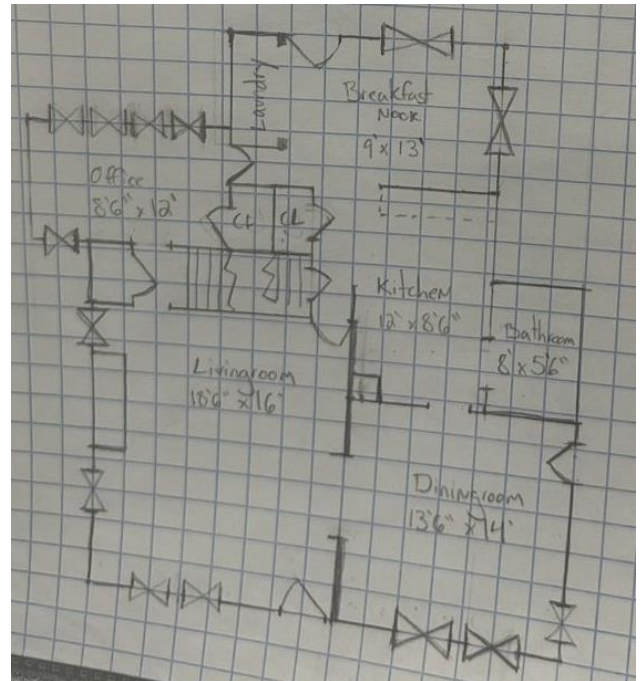 Laundry
Breakfast
Nook
9' x 13'
Office
8'6" x 12'
CL
CL
Kitchen
12' x 8'6"
Bathroom
8' x 5'6"
Livingroom
18'6" x 16'
Diningroom
13'6" x 14'